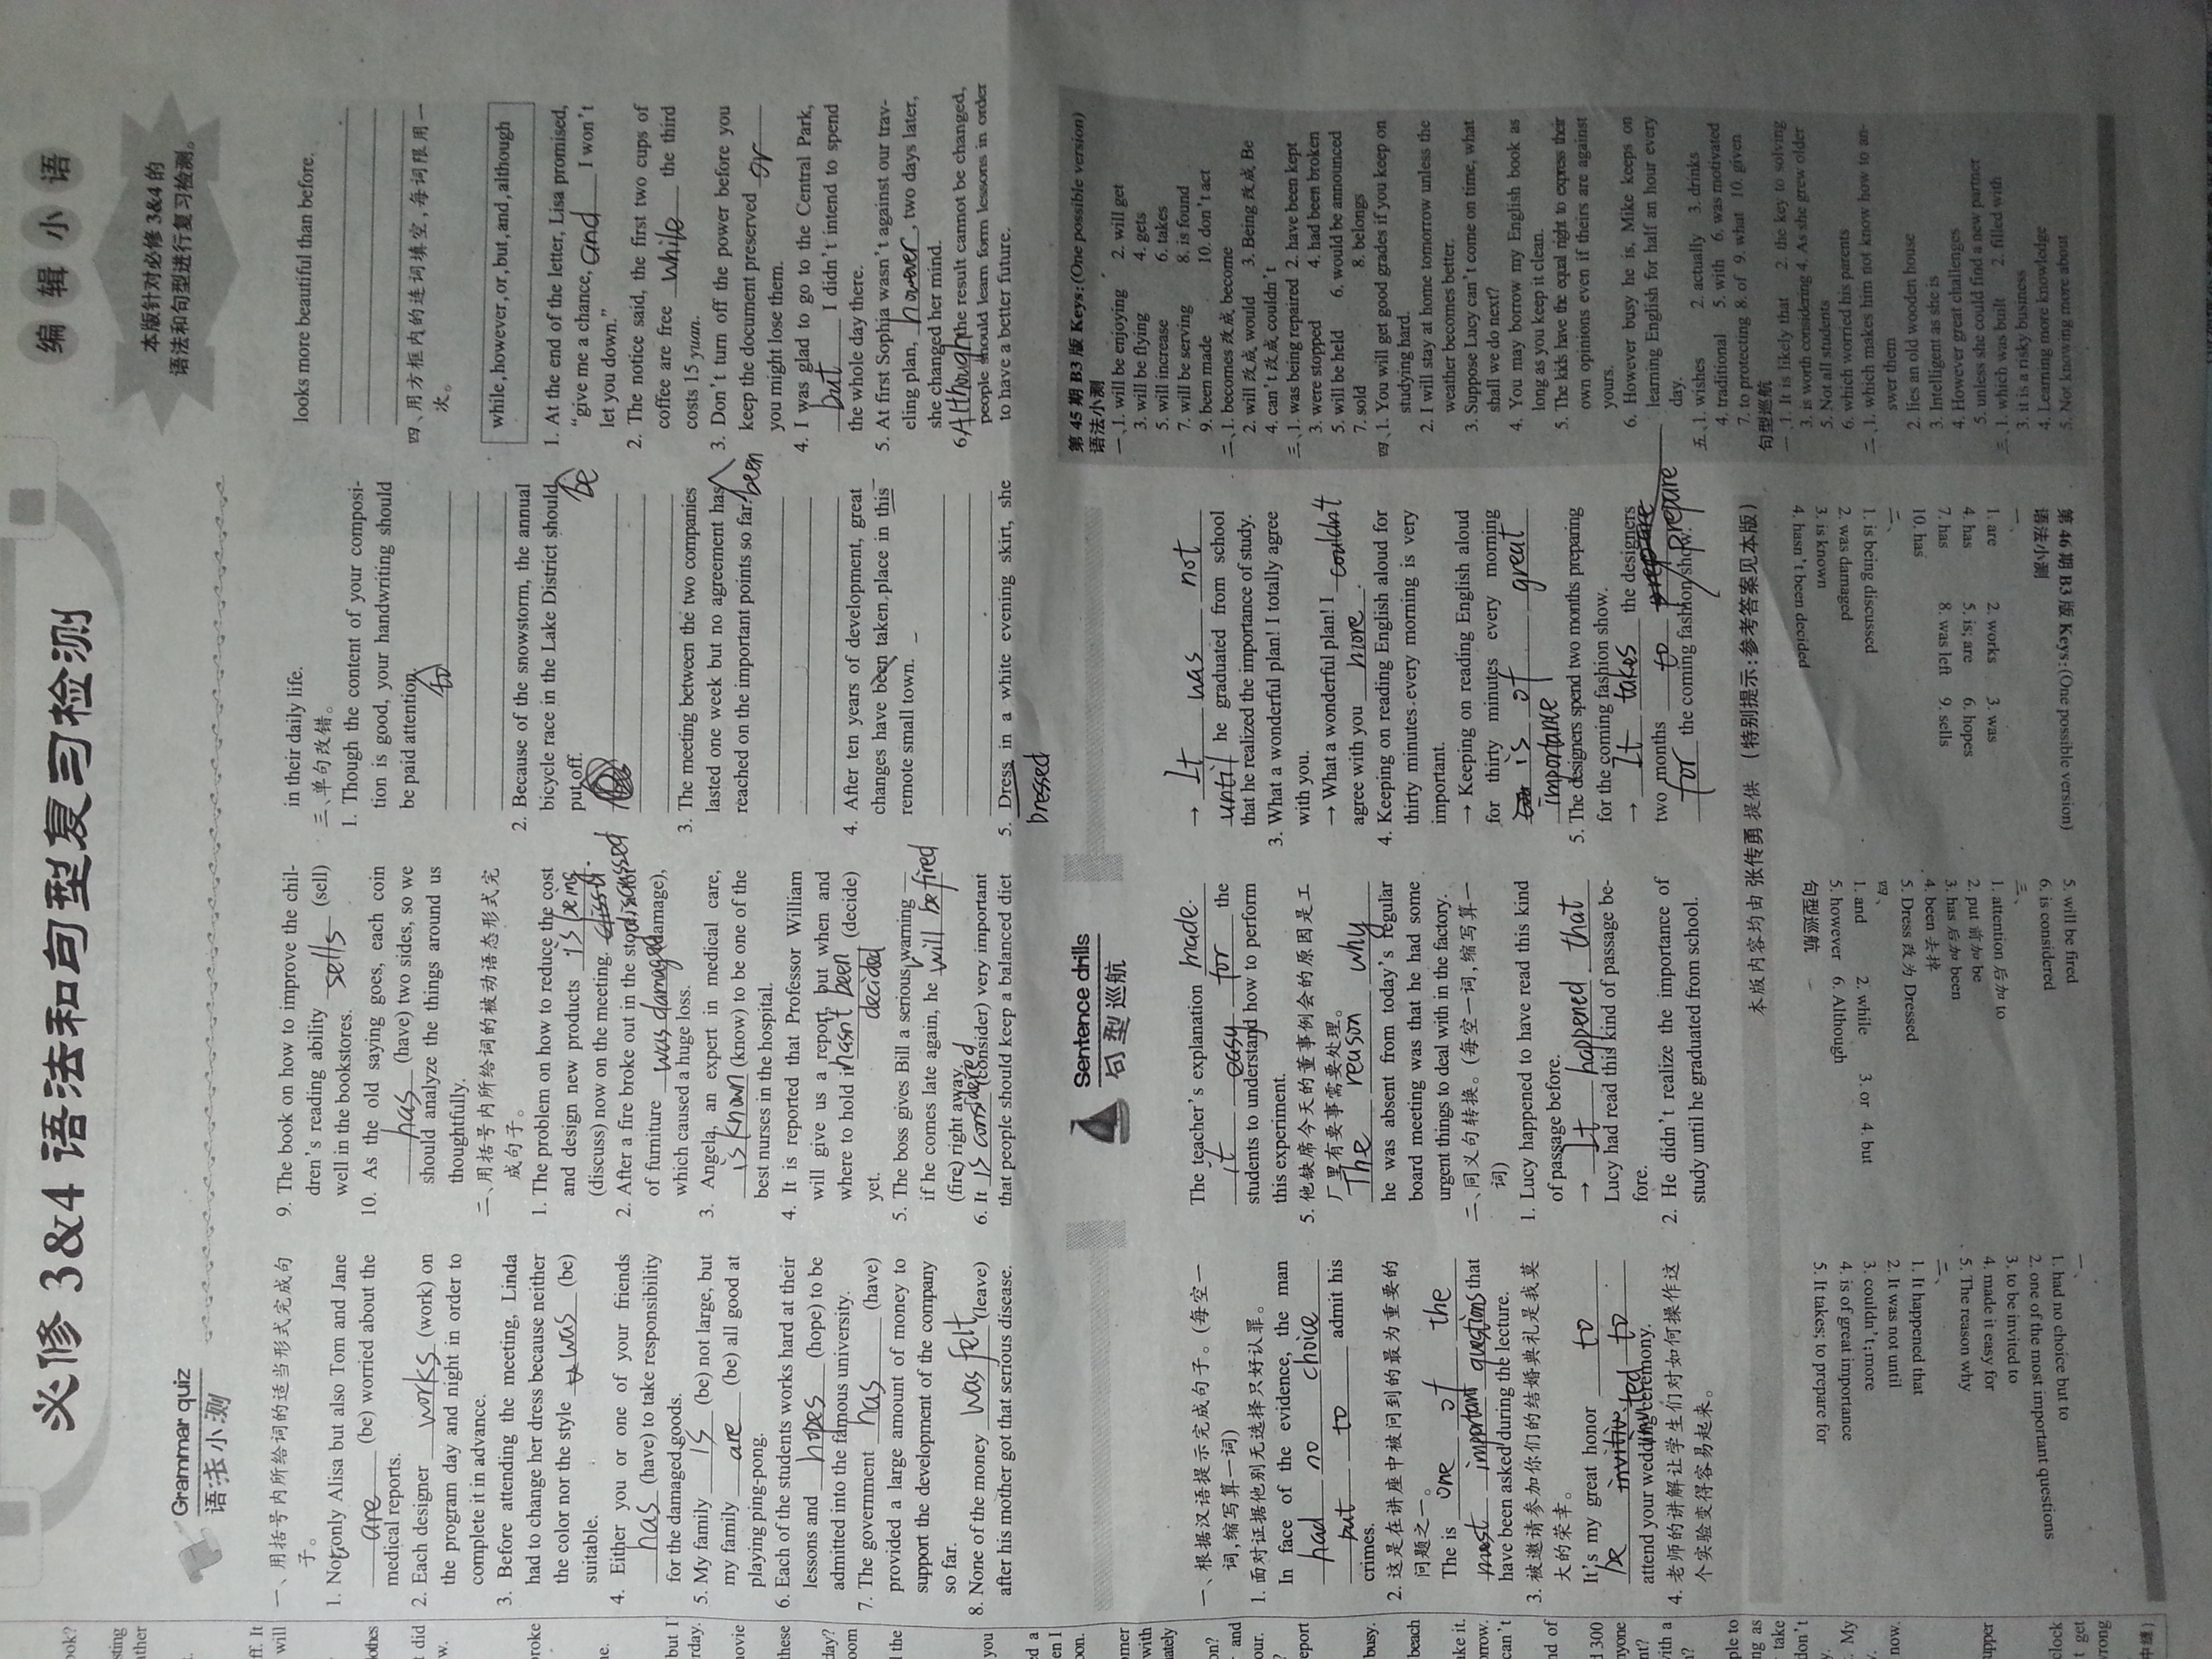 必修 3&4 语法和句型复习检测
编辑小语
本版针对必修 3&4 的
语法和句型进行复习检测。
Grammar quiz
语法小测
一、用括号内所给词的适当形式完成句
子。
1. Not only Alisa but also Tom and Jane
are (be) worried about the
medical reports.
2. Each designer works (work) on
the program day and night in order to
complete it in advance.
3. Before attending the meeting, Linda
had to change her dress because neither
the color nor the style was (be)
suitable.
4. Either you or one of your friends
has (have) to take responsibility
for the damaged goods.
5. My family is (be) not large, but
my family are (be) all good at
playing ping-pong.
6. Each of the students works hard at their
lessons and hopes (hope) to be
admitted into the famous university.
7. The government has (have)
provided a large amount of money to
support the development of the company
so far.
8. None of the money was felt (leave)
after his mother got that serious disease.
9. The book on how to improve the chil-
dren's reading ability sells (sell)
well in the bookstores.
10. As the old saying goes, each coin
has (have) two sides, so we
should analyze the things around us
thoughtfully.
二、用括号内所给词的被动语态形式完
成句子。
1. The problem on how to reduce the cost
and design new products is being
(discuss) now on the meeting.
discussed
2. After a fire broke out in the store, a lot
of furniture was damaged (damage),
which caused a huge loss.
3. Angela, an expert in medical care,
is known (know) to be one of the
best nurses in the hospital.
4. It is reported that Professor William
will give us a report, but when and
where to hold it hasn't been (decide)
yet. decided
5. The boss gives Bill a serious warning —
if he comes late again, he will be fired
(fire) right away.
6. It is considered (consider) very important
that people should keep a balanced diet
in their daily life.
三、单句改错。
1. Though the content of your composi-
tion is good, your handwriting should
be paid attention.
to
2. Because of the snowstorm, the annual
bicycle race in the Lake District should
put off. be
3. The meeting between the two companies
lasted one week but no agreement has
reached on the important points so far. been
4. After ten years of development, great
changes have been taken place in this
remote small town.
5. Dress in a white evening skirt, she
Dressed
looks more beautiful than before.
四、用方框内的连词填空,每词限用一
次。
while, however, or, but, and, although
1. At the end of the letter, Lisa promised,
"give me a chance, and I won't
let you down."
2. The notice said, the first two cups of
coffee are free while the third
costs 15 yuan.
3. Don't turn off the power before you
keep the document preserved or
you might lose them.
4. I was glad to go to the Central Park,
but I didn't intend to spend
the whole day there.
5. At first Sophia wasn't against our trav-
eling plan, however, two days later,
she changed her mind.
6. Although the result cannot be changed,
people should learn form lessons in order
to have a better future.
Sentence drills
句型巡航
一、根据汉语提示完成句子。(每空一
词,缩写算一词)
1. 面对证据他别无选择只好认罪。
In face of the evidence, the man
had no choice
but to admit his
crimes.
2. 这是在讲座中被问到的最为重要的
问题之一。
The is one of the
most important questions that
have been asked during the lecture.
3. 被邀请参加你们的结婚典礼是我莫
大的荣幸。
It's my great honor to
be invited to
attend your wedding ceremony.
4. 老师的讲解让学生们对如何操作这
个实验变得容易起来。
The teacher's explanation made
it easy for the
students to understand how to perform
this experiment.
5. 他缺席今天的董事例会的原因是工
厂里有要事需要处理。
The reason why
he was absent from today's regular
board meeting was that he had some
urgent things to deal with in the factory.
二、同义句转换。(每空一词,缩写算一
词)
1. Lucy happened to have read this kind
of passage before.
→ It happened that
Lucy had read this kind of passage be-
fore.
2. He didn't realize the importance of
study until he graduated from school.
→ It was not
until he graduated from school
that he realized the importance of study.
3. What a wonderful plan! I totally agree
with you.
→ What a wonderful plan! I couldn't
agree with you more.
4. Keeping on reading English aloud for
thirty minutes every morning is very
important.
→ Keeping on reading English aloud
for thirty minutes every morning
is of great
importance
5. The designers spend two months preparing
for the coming fashion show.
→ It takes the designers
two months to prepare
for the coming fashion show.
第 45 期 B3 版 Keys:(One possible version)
语法小测
一、1. will be enjoying 2. will get
3. will be flying 4. gets
5. will increase 6. takes
7. will be serving 8. is found
9. been made 10. don't act
二、1. becomes 改成 become
2. will 改成 would 3. Being 改成 Be
4. can't 改成 couldn't
三、1. was being repaired 2. have been kept
3. were stopped 4. had been broken
5. will be held 6. would be announced
7. sold 8. belongs
四、1. You will get good grades if you keep on
studying hard.
2. I will stay at home tomorrow unless the
weather becomes better.
3. Suppose Lucy can't come on time, what
shall we do next?
4. You may borrow my English book as
long as you keep it clean.
5. The kids have the equal right to express their
own opinions even if theirs are against
yours.
6. However busy he is, Mike keeps on
learning English for half an hour every
day.
五、1. wishes 2. actually 3. drinks
4. traditional 5. with 6. was motivated
7. to protecting 8. of 9. what 10. given
句型巡航
一、1. It is likely that 2. the key to solving
3. is worth considering 4. As she grew older
5. Not all students
6. which worried his parents
二、1. which makes him not know how to an-
swer them
2. lies an old wooden house
3. Intelligent as she is
4. However great challenges
5. unless she could find a new partner
三、1. which was built 2. filled with
3. it is a risky business
4. Learning more knowledge
5. Not knowing more about
本版内容均由 张传勇 提供 (特别提示:参考答案见本版)
第 46 期 B3 版 Keys:(One possible version)
语法小测
一、
1. are 2. works 3. was
4. has 5. is; are 6. hopes
7. has 8. was left 9. sells
10. has
二、
1. is being discussed
2. was damaged
3. is known
4. hasn't been decided
5. will be fired
6. is considered
三、
1. attention 后加 to
2. put 前加 be
3. has 后加 been
4. been 去掉
5. Dress 改为 Dressed
四、
1. and 2. while 3. or 4. but
5. however 6. Although
句型巡航
一、
1. had no choice but to
2. one of the most important questions
3. to be invited to
4. made it easy for
5. The reason why
二、
1. It happened that
2. It was not until
3. couldn't; more
4. is of great importance
5. It takes; to prepare for